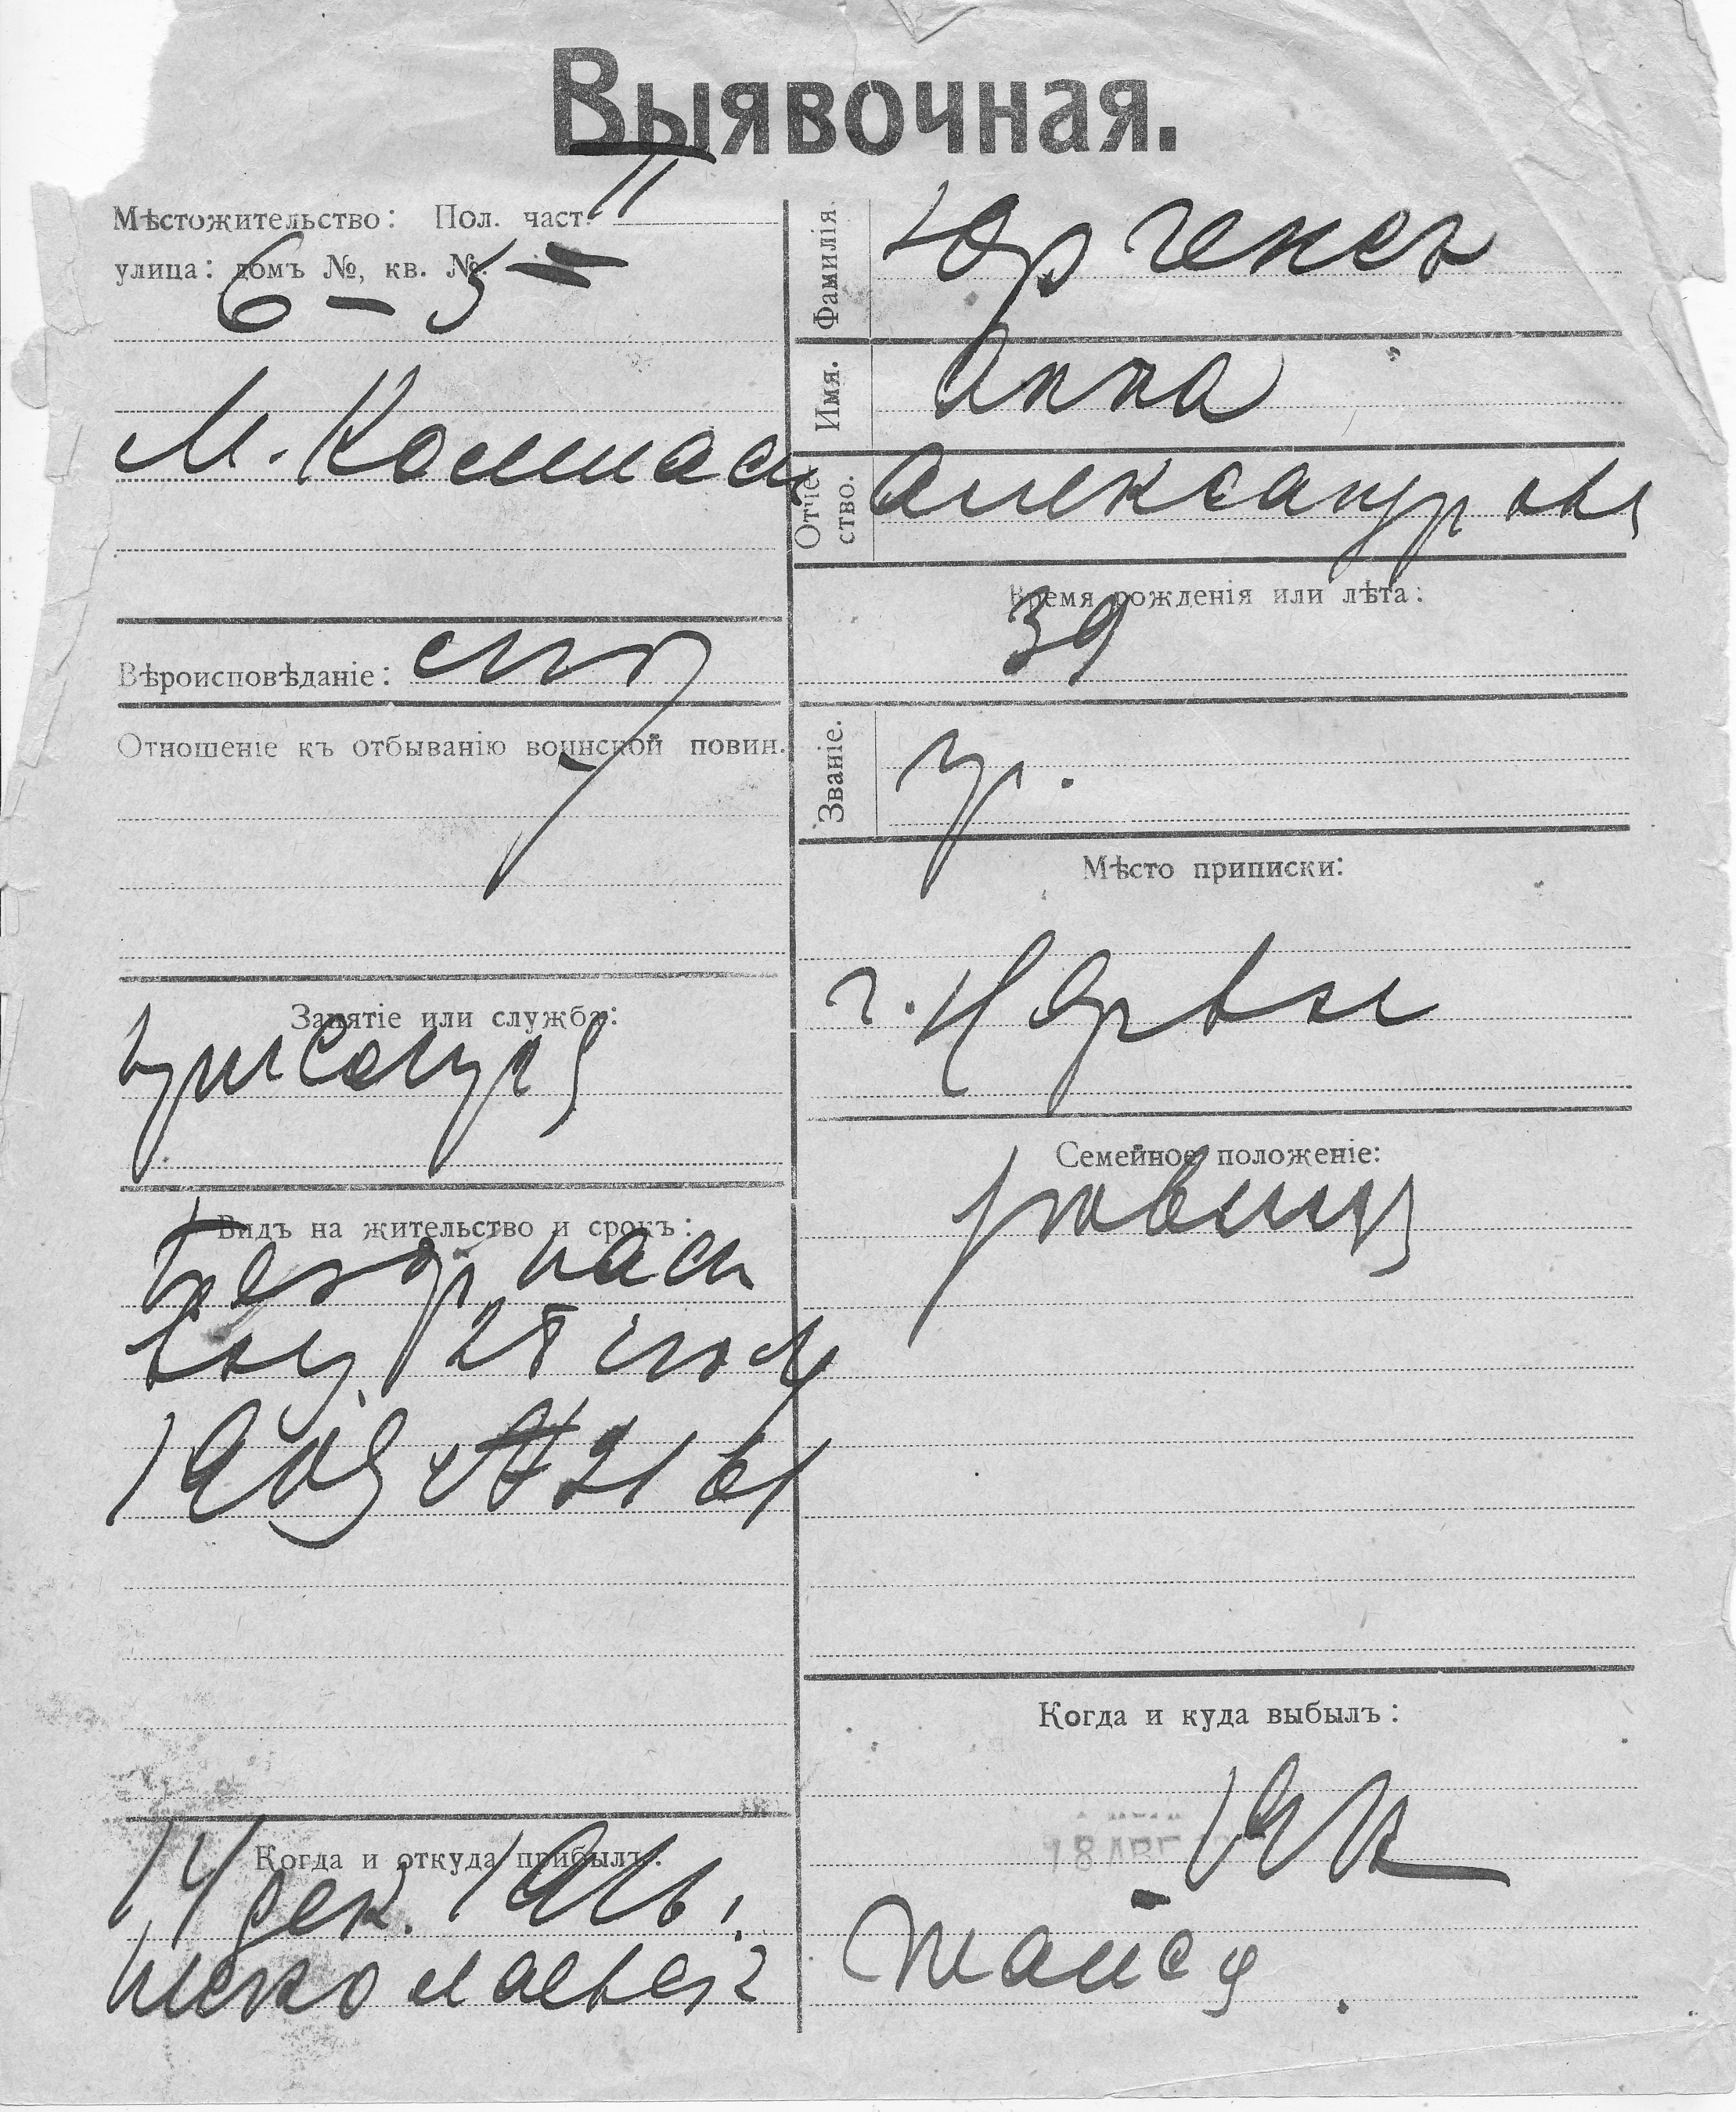 Выявочная.
Мѣстожительство: Пол. част. II
улица: домъ №, кв. №.
6 – 5
М. Компас
Вѣроисповѣданіе:
Отношеніе къ отбыванію воинской повин.
Занятіе или служба:
Видъ на жительство и срокъ:
Безср. пасп
выд. 28 июля
1909 № 2161
Когда и откуда прибылъ:
14 дек. 1916 г.
Николаевск
Фамилія.
Юргенсъ
Имя.
Анна
Отчество.
Александровна
Время рожденія или лѣта:
39
Званіе.
Мѣсто приписки:
г. Нарвы
Семейное положеніе:
Когда и куда выбылъ:
18 АВГ